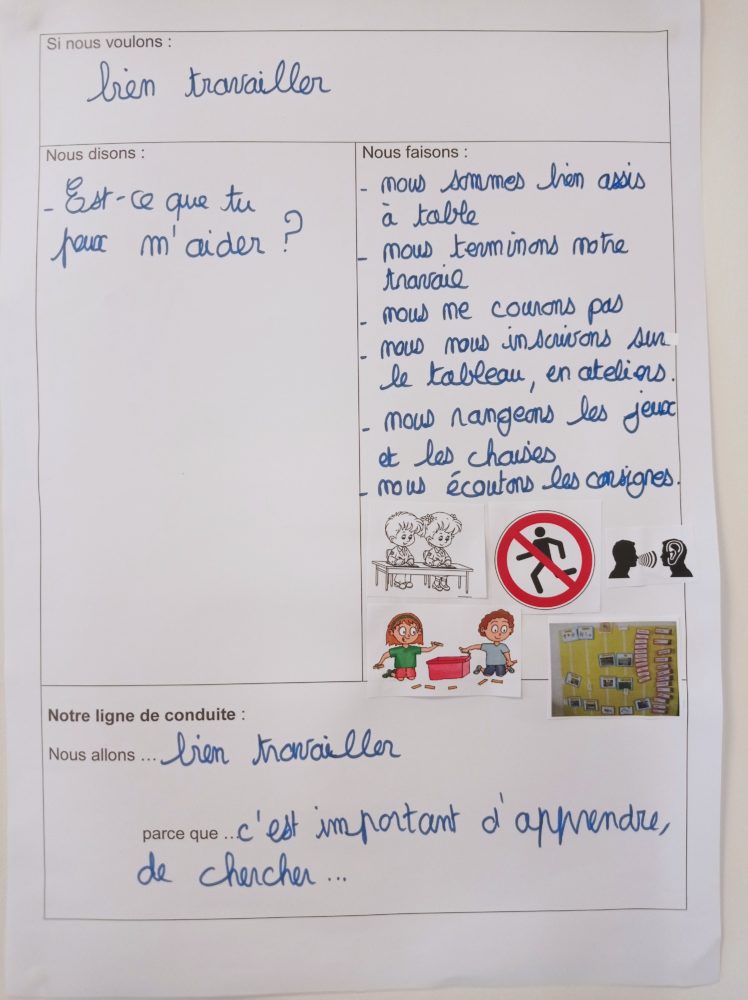 Si nous voulons :
bien travailler
Nous disons :
- Est-ce que tu
peux m'aider ?
Nous faisons :
- nous sommes bien assis
à table
- nous terminons notre
travail
- nous ne courons pas
- nous nous inscrivons sur
le tableau, en ateliers.
- nous rangeons les jeux
et les chaises
- nous écoutons les consignes.
Notre ligne de conduite :
Nous allons ... bien travailler
parce que ... c'est important d'apprendre,
de chercher ...